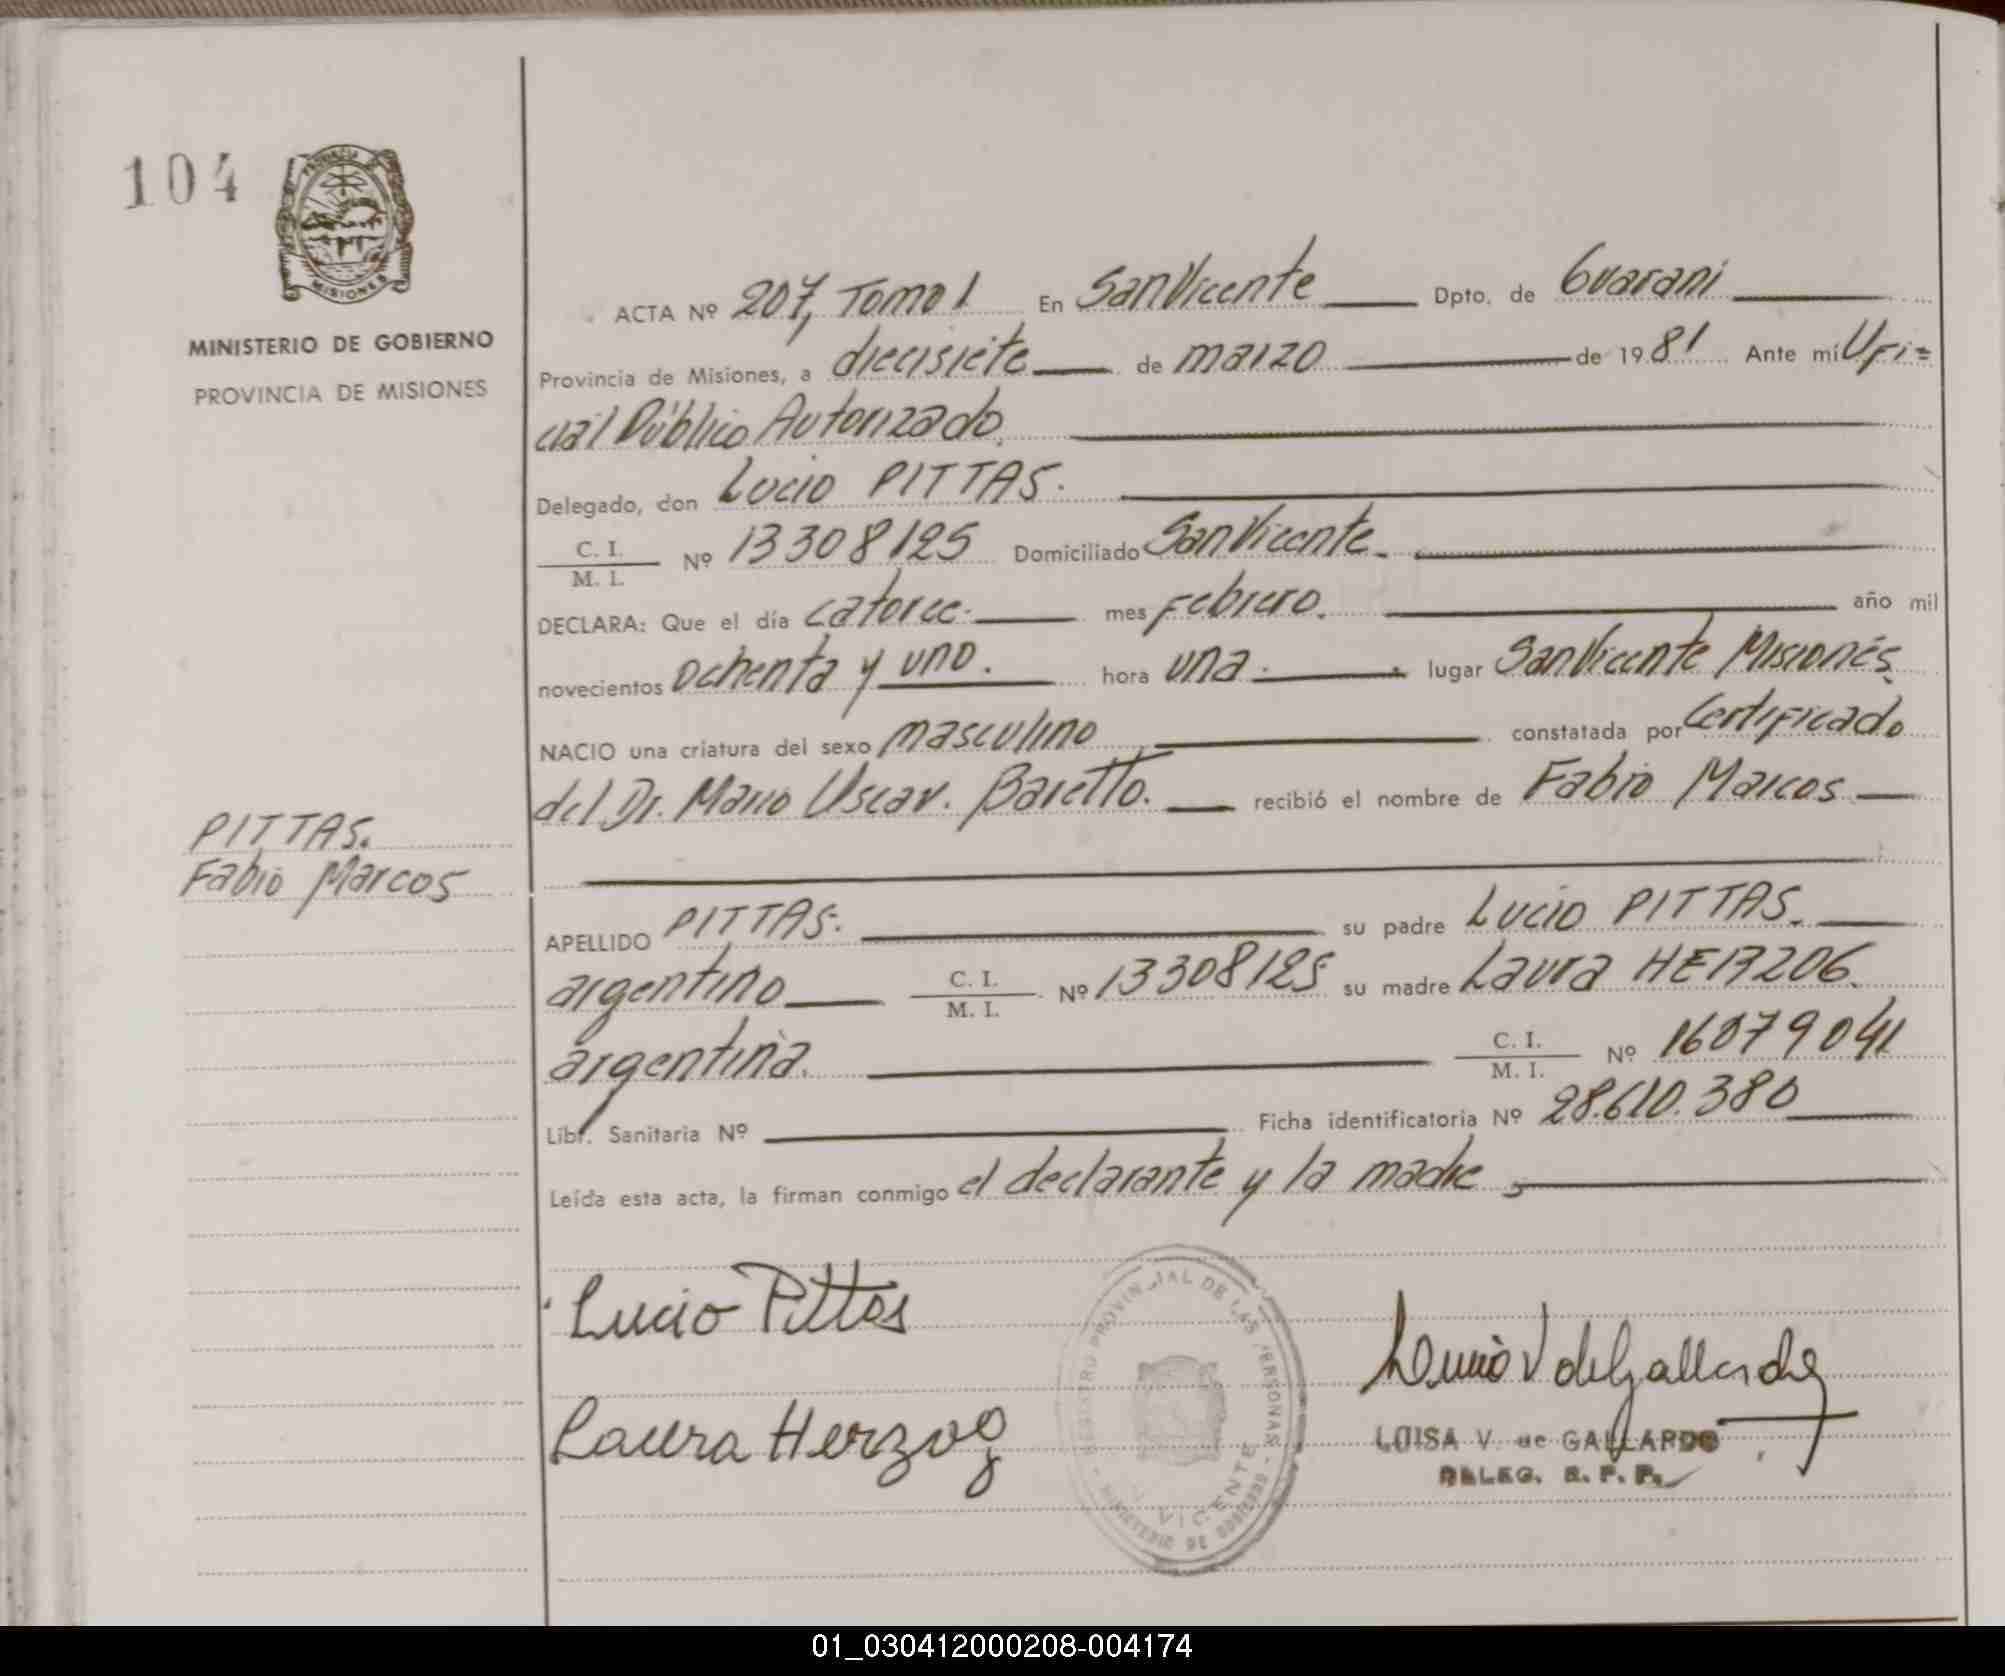 104
PROVINCIA DE
MISIONES
MINISTERIO DE GOBIERNO
PROVINCIA DE MISIONES
PITTAS.
Fabio Marcos
ACTA Nº 207, Tomo I En San Vicente Dpto. de Guarani
Provincia de Misiones, a diecisiete de marzo de 1981 Ante mí Ofi=
cial Público Autorizado.
Delegado, don Lucio PITTAS.
C. I.
M. I. Nº 13308125 Domiciliado San Vicente.
DECLARA: Que el día catorce. mes Febrero. año mil
novecientos ochenta y uno. hora una. lugar San Vicente Misiones
NACIO una criatura del sexo masculino constatada por Certificado
del Dr. Mario Oscar. Baretto. recibió el nombre de Fabio Marcos
APELLIDO PITTAS. su padre Lucio PITTAS.
argentino C. I.
M. I. Nº 13308125 su madre Laura HERZOG.
argentina. C. I.
M. I. Nº 16079041
Libr. Sanitaria Nº Ficha identificatoria Nº 28.610.380
Leída esta acta, la firman conmigo el declarante y la madre
Lucio Pittas
Laura Herzog
REGISTRO PROVINCIAL DE LAS PERSONAS
MINISTERIO DE GOBIERNO
VICENTE
V de Gallardo
LUISA V. de GALLARDO
DELEG. R. P. P.
01_030412000208-004174